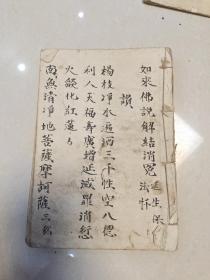 如來佛說解結消冤延生保
讚
楊枝净水遍洒三千性空八德
利人天福壽廣增延滅罪消愆
火燄化紅蓮
南無清凈地菩薩摩訶薩三称